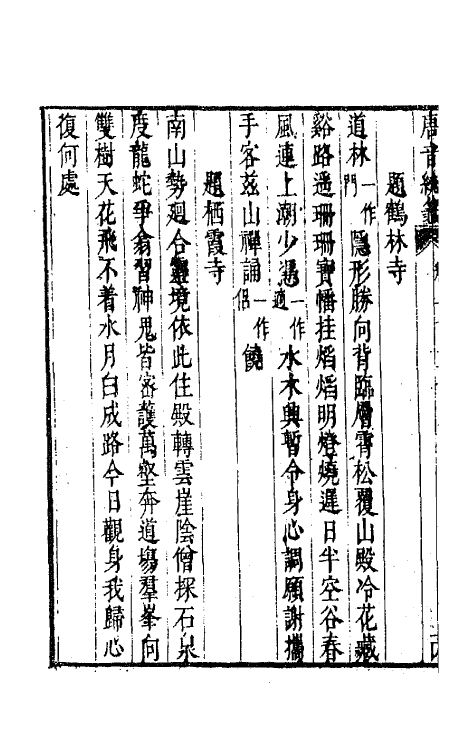 唐音統籖
題鶴林寺
道林一作門隱形勝向背臨層霄松覆山殿冷花藏
谿路遥珊珊寶幡挂熖熖明燈燒遲日半空谷春
風連上潮少憑一作適水木興暫令身心調願謝攜
手客兹山禪誦一作侣饒
題栖霞寺
南山勢廻合靈境依此住殿轉雲崖陰僧探石泉
度龍蛇爭翕習神鬼皆密護萬壑奔道場羣峯向
雙樹天花飛不着水月白成路今日觀身我歸心
復何處